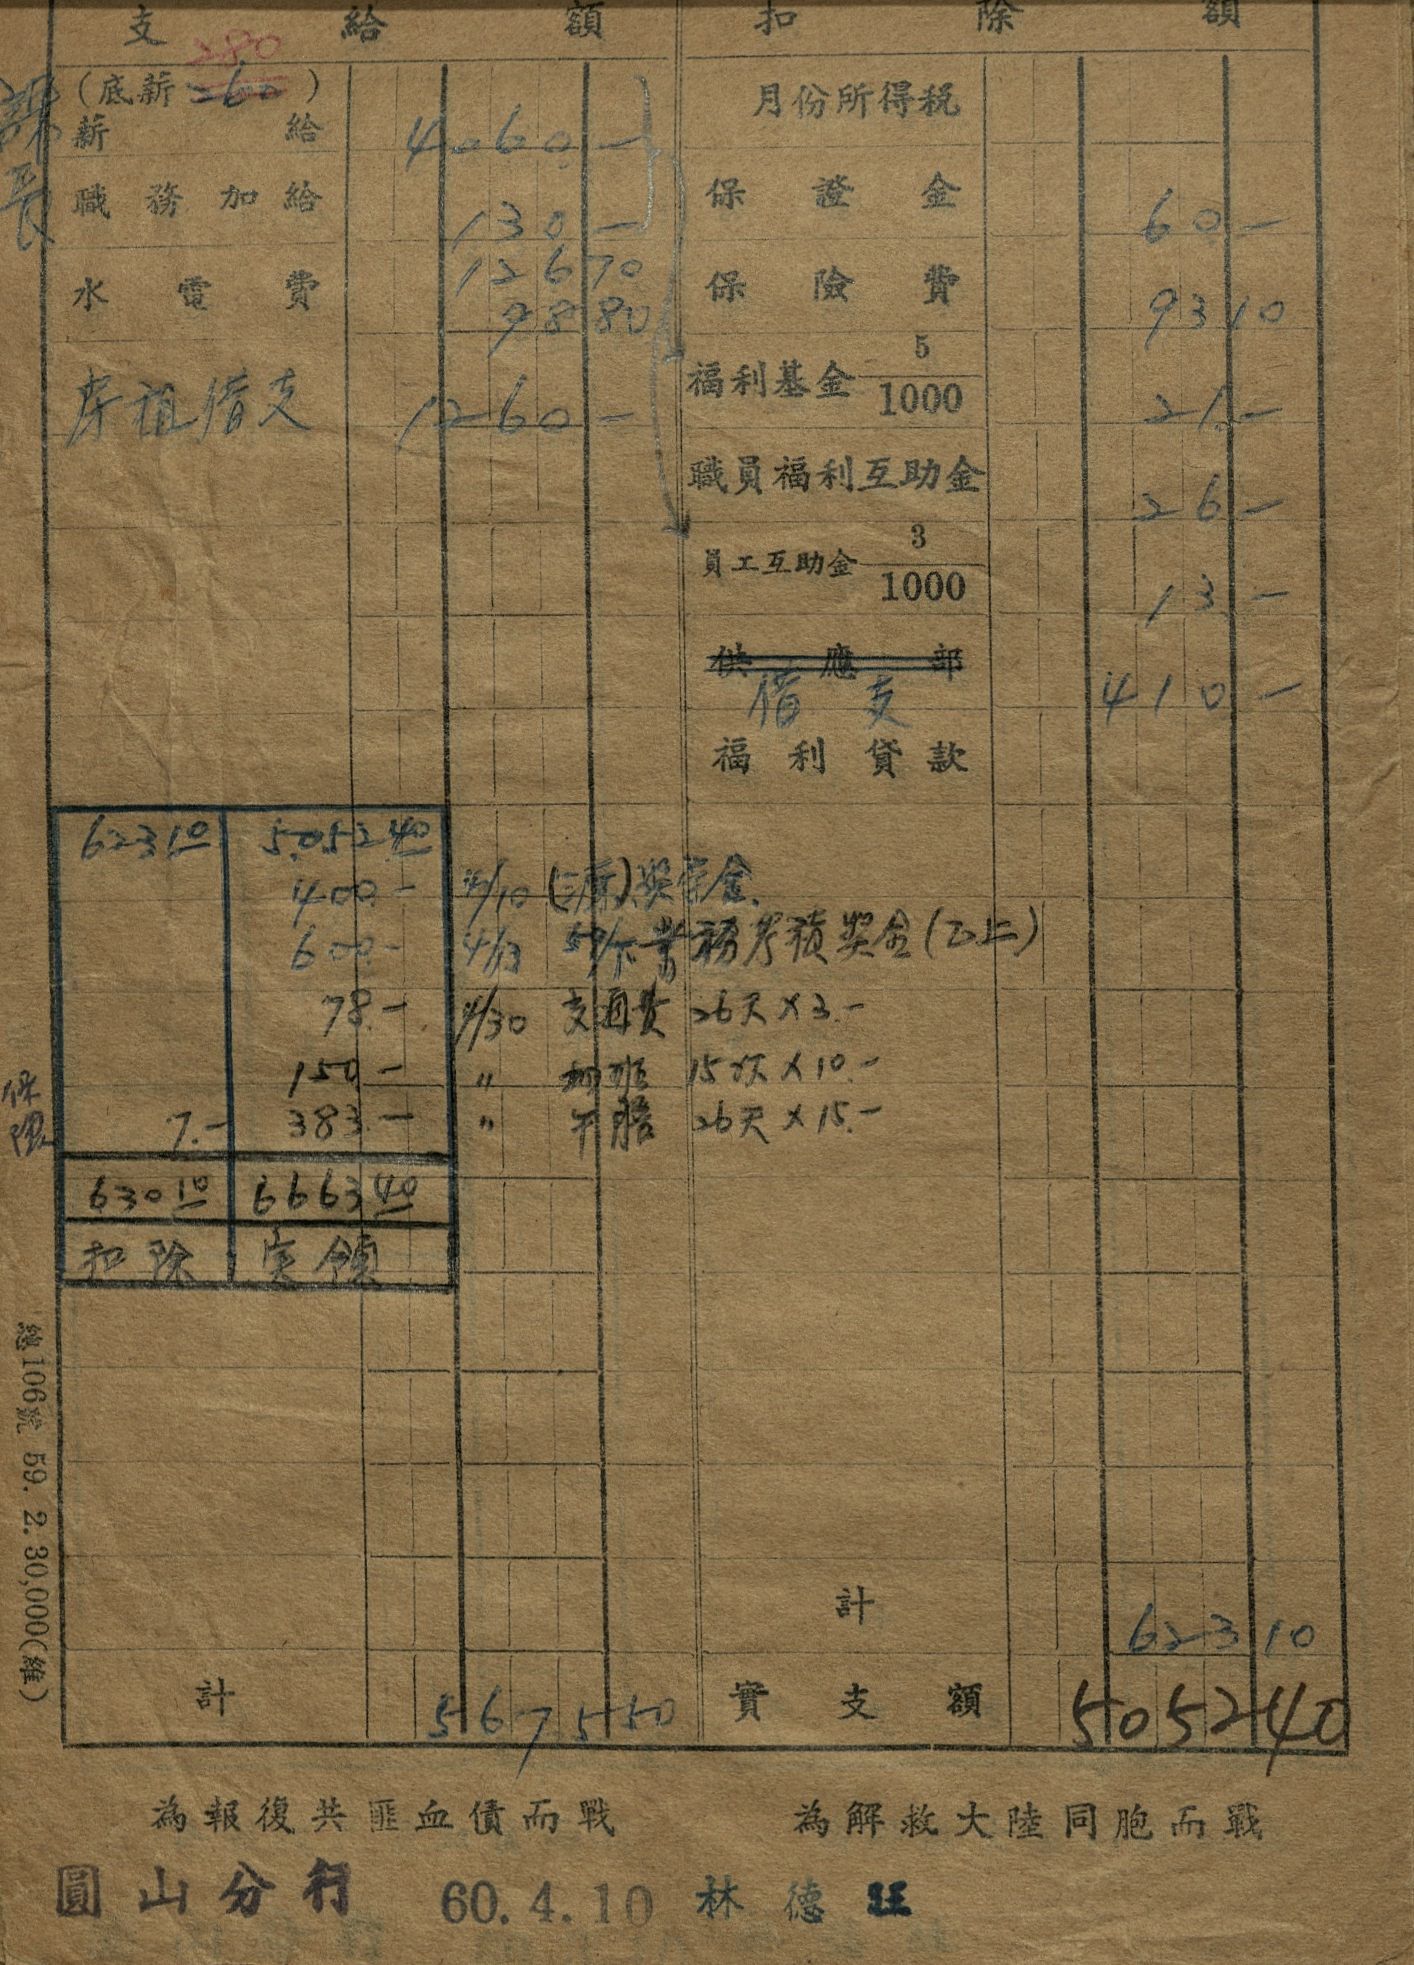 支給額 扣除額
280
(底薪 260)
薪給 4060.-
課長
職務加給 130-
水電費 126 70
98 80
房租借支 1260-
月份所得稅
保證金 60-
保險費 93 10
福利基金 5/1000 21.-
職員福利互助金 26-
員工互助金 3/1000 13-
供應部
借支 410-
福利貸款
623 10 5,052 40
400.- 4/10 獎金
600.- 4/13 59/下業務考積奬金(乙上)
78.- 4/30 交通費 26天×3.-
150- " 加班 15次×10.-
保險 7.- 383.- " 午膳 26天×15.-
630 10 6663 40
扣除 实領
總106號 59. 2. 30,000(維)
計 623 10
計 5675 50
實支額 5052 40
為報復共匪血債而戰 為解救大陸同胞而戰
圓山分行 60.4.10 林德旺